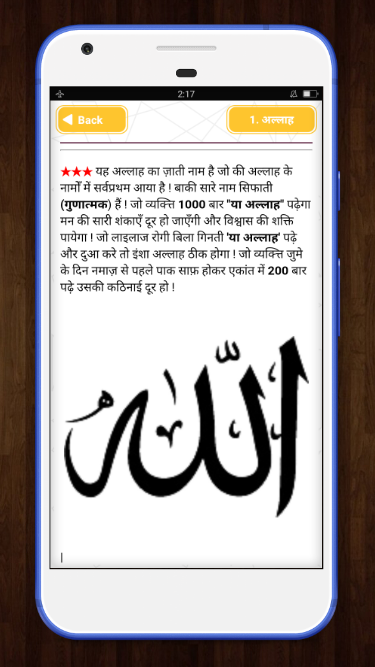 2:17
Back
1. अल्लाह
★★★ यह अल्लाह का ज़ाती नाम है जो की अल्लाह के
नामों में सर्वप्रथम आया है ! बाकी सारे नाम सिफाती
(गुणात्मक) हैं ! जो व्यक्ति 1000 बार "या अल्लाह" पढ़ेगा
मन की सारी शंकाएँ दूर हो जाएँगी और विश्वास की शक्ति
पायेगा ! जो लाइलाज रोगी बिला गिनती 'या अल्लाह' पढ़े
और दुआ करे तो इंशा अल्लाह ठीक होगा ! जो व्यक्ति जुमे
के दिन नमाज़ से पहले पाक साफ़ होकर एकांत में 200 बार
पढ़े उसकी कठिनाई दूर हो !
الله